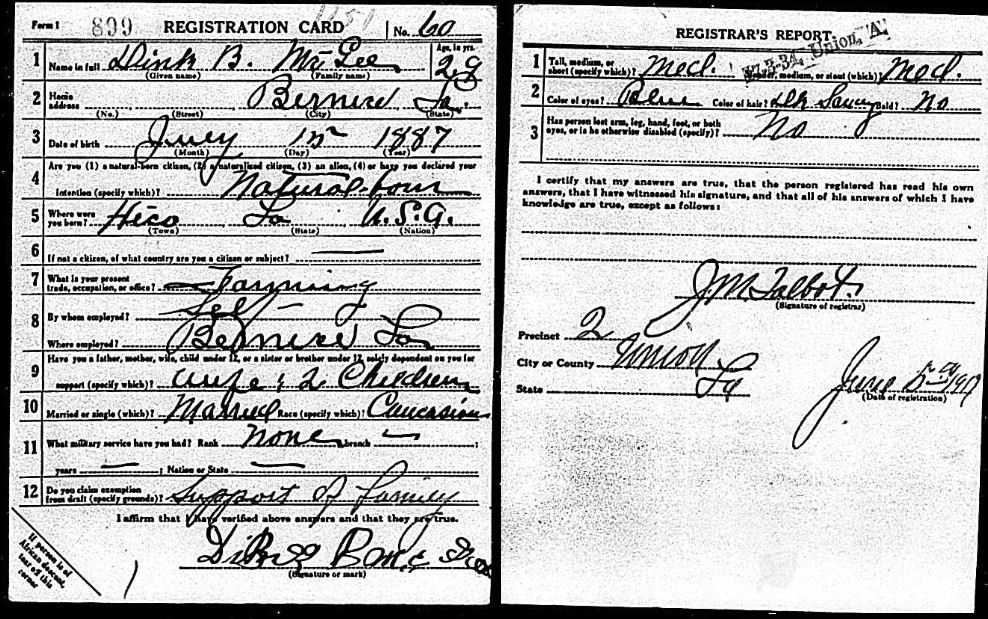 Form 1 899 REGISTRATION CARD No. 60
1 Name in full Dink B. McGee Age, in yrs. 29
(Given name) (Family name)
2 Home address Bernice La.
(No.) (Street) (City) (State)
3 Date of birth July 15 1887
(Month) (Day) (Year)
4 Are you (1) a natural-born citizen, (2) a naturalized citizen, (3) an alien, (4) or have you declared your
intention (specify which)? Natural born
5 Where were you born? Hico La U.S.A.
(Town) (State) (Nation)
6 If not a citizen, of what country are you a citizen or subject?
7 What is your present trade, occupation, or office? Farming
8 By whom employed? Self
Where employed? Bernice La
9 Have you a father, mother, wife, child under 12, or a sister or brother under 12, solely dependent on you for
support (specify which)? Wife & 2 Children
10 Married or single (which)? Married Race (specify which)? Caucasian
11 What military service have you had? Rank none branch ;
years ; Nation or State
12 Do you claim exemption from draft (specify grounds)? Support of family
I affirm that I have verified above answers and that they are true.
(Signature or mark)
If person is of
African descent,
tear off this
corner
REGISTRAR'S REPORT
Union, "A"
1 Tall, medium, or short (specify which)? Med. Slender, medium, or stout (which)? Med.
2 Color of eyes? Blue Color of hair? Dk Sandy Bald? No
3 Has person lost arm, leg, hand, foot, or both eyes, or is he otherwise disabled (specify)? No
I certify that my answers are true, that the person registered has read his own
answers, that I have witnessed his signature, and that all of his answers of which I have
knowledge are true, except as follows:
J M Talbot.
(Signature of registrar)
Precinct 2
City or County Union
State La
June 5 1917
(Date of registration)